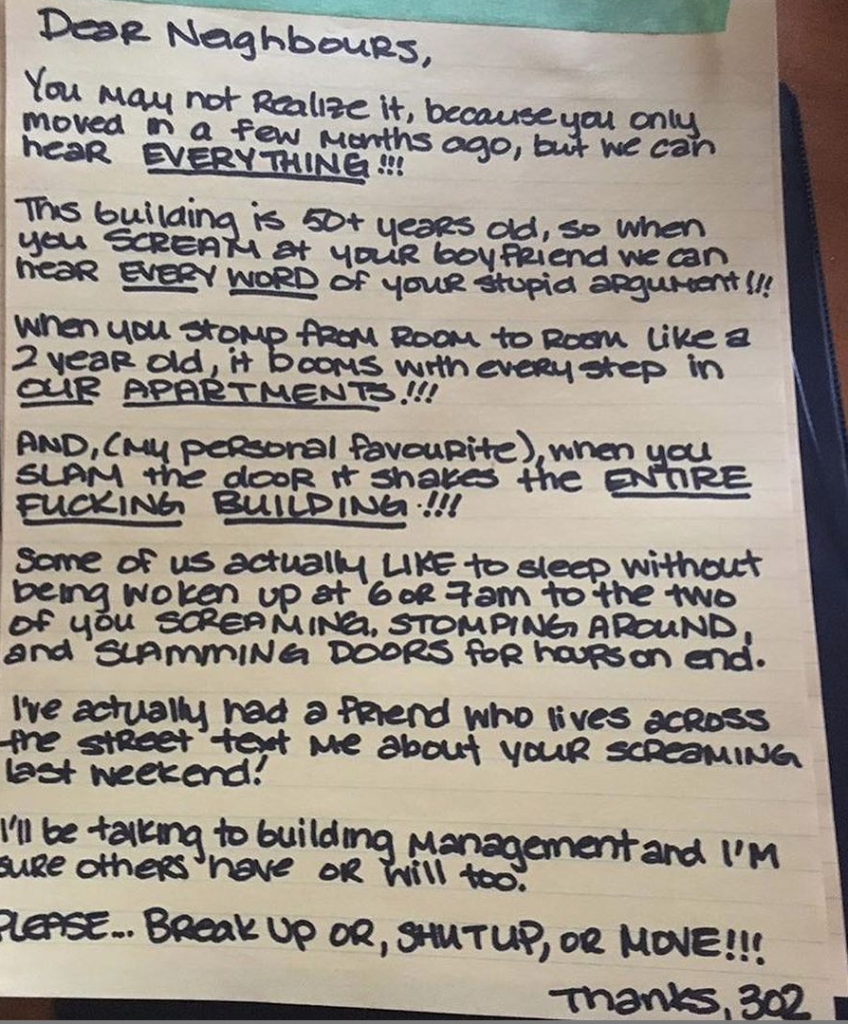 Dear Neaghbours,
You may not Realize it, because you only
moved in a few months ago, but we can
hear EVERYTHING!!!
This building is 50+ years old, so when
you SCREAM at your boyfriend we can
hear EVERY WORD of your stupid argument!!!
When you stomp from room to room like a
2 year old, it booms with every step in
OUR APARTMENTS!!!
AND, (my personal favourite), when you
SLAM the door it shakes the ENTIRE
FUCKING BUILDING!!!
Some of us actually LIKE to sleep without
being woken up at 6 or 7am to the two
of you SCREAMING, STOMPING AROUND,
and SLAMMING DOORS for hours on end.
I've actually had a friend who lives across
the street text me about your screaming
last weekend!
I'll be talking to building management and I'm
sure others have or will too.
PLEASE... Break up or, SHUT UP, or MOVE!!!
Thanks, 302